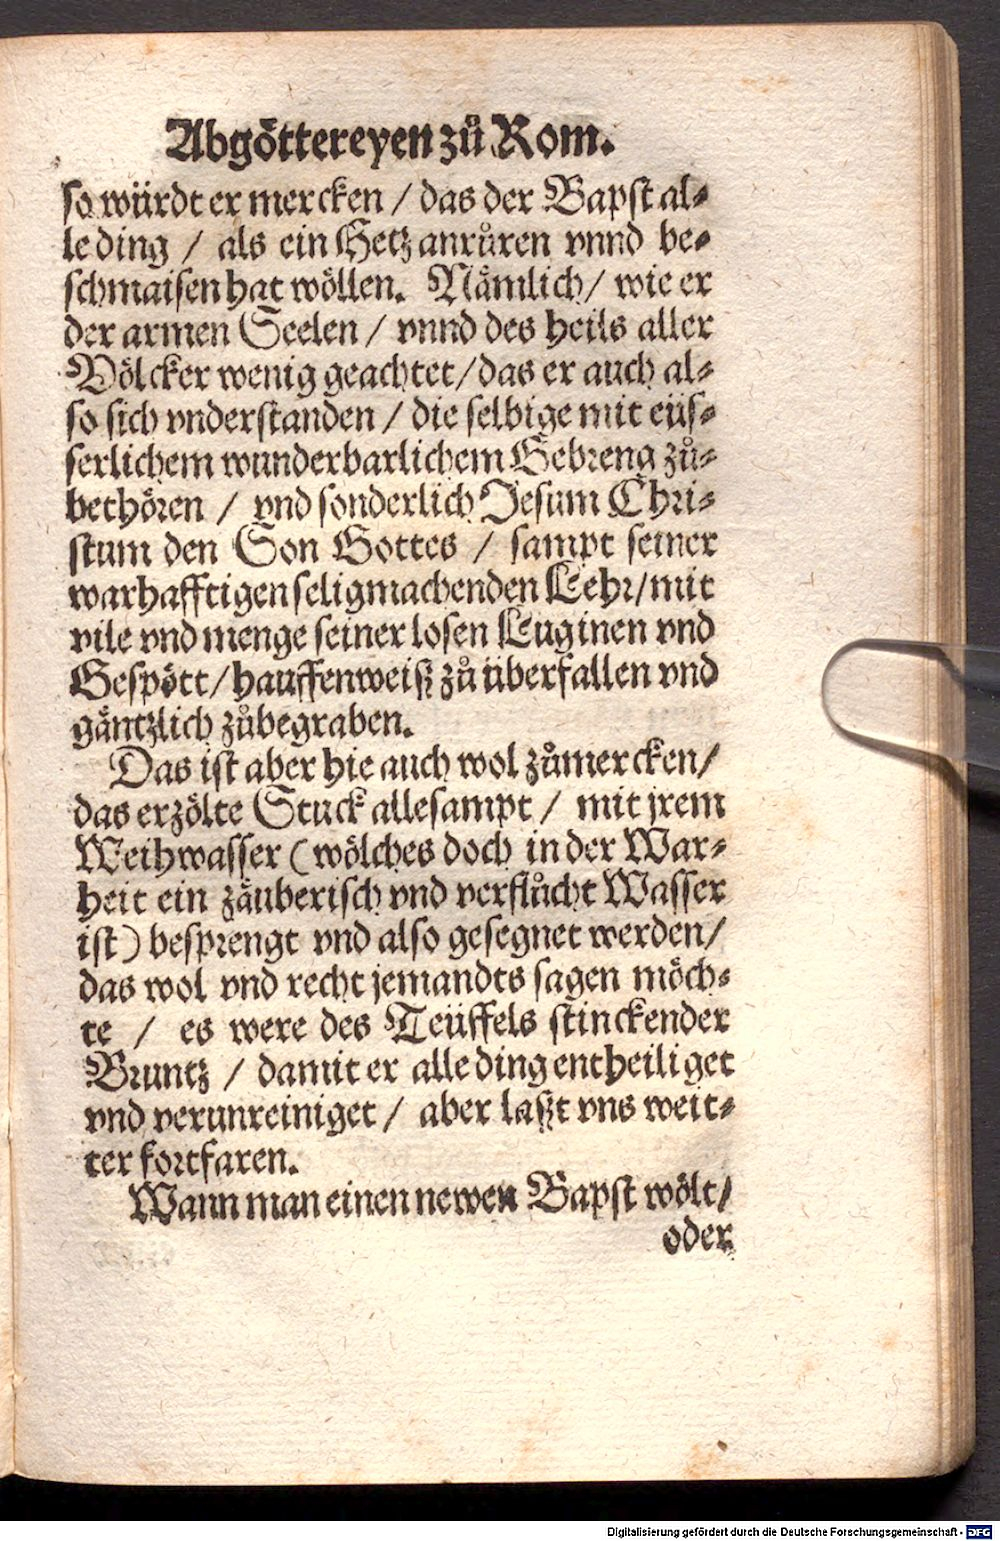 Abgöttereyen zů Rom.
so würdt er mercken / das der Bapst al⸗
le ding / als ein Hetz anrůren vnnd be⸗
schmaisen hat wöllen. Nåmlich / wie er
der armen Seelen / vnnd des heils aller
Völcker wenig geachtet / das er auch al⸗
so sich vnderstanden / die selbige mit eüs⸗
serlichem wunderbarlichem Gebreng zů⸗
bethören / vnd sonderlich Jesum Chri⸗
stum den Son Gottes / sampt seiner
warhafftigen seligmachenden Lehr / mit
vile vnd menge seiner losen Luginen vnd
Gespött / hauffenweiß zů überfallen vnd
gäntzlich zůbegraben.
Das ist aber hie auch wol zůmercken /
das erzölte Stuck allesampt / mit jrem
Weihwasser (wölches doch in der War⸗
heit ein zäuberisch vnd verflůcht Wasser
ist) besprengt vnd also gesegnet werden /
das wol vnd recht jemandts sagen möch⸗
te / es were des Teüffels stinckender
Bruntz / damit er alle ding entheiliget
vnd verunreiniget / aber laßt vns weit⸗
ter fortfaren.
Wann man einen newen Bapst wölt /
oder
Digitalisierung gefördert durch die Deutsche Forschungsgemeinschaft - DFG